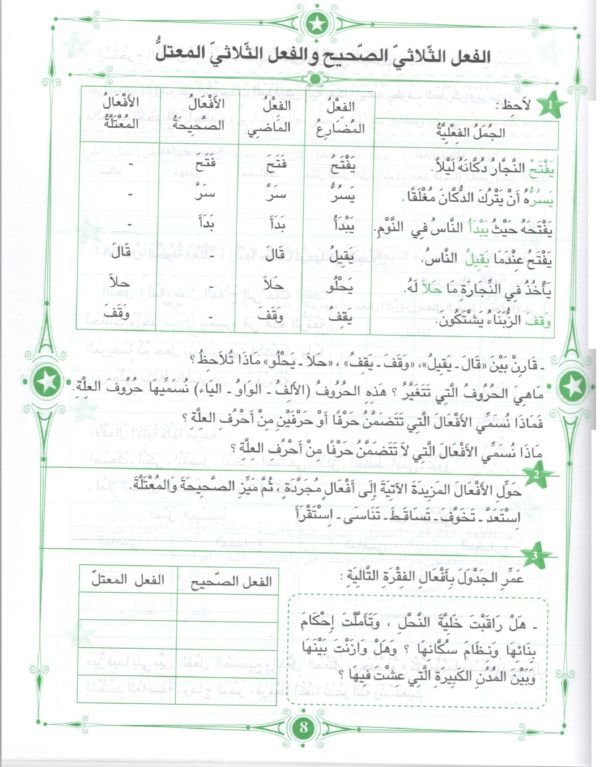 الفعل الثّلاثيّ الصّحيح والفعل الثّلاثيّ المعتلُّ
1 لاَحِظْ :
الجُمَلُ الفِعْلِيَّةُ الفِعْلُ المُضَارِعُ الفِعْلُ المَاضِي الأَفْعَالُ الصَّحِيحَةُ الأَفْعَالُ المُعْتَلَّةُ
يَفْتَحُ النَّجَّارُ دُكَّانَهُ لَيْلاً. يَفْتَحُ فَتَحَ فَتَحَ -
يَسُرُّهُ أَنْ يَتْرُكَ الدُّكَّانَ مُغْلَقًا. يَسُرُّ سَرَّ سَرَّ -
يَفْتَحَهُ حَيْثُ يَبْدَأُ النَّاسُ في النَّوْمِ. يَبْدَأُ بَدَأَ بَدَأَ -
يَفْتَحُ عِنْدَمَا يَقِيلُ النَّاسُ. يَقِيلُ قَالَ - قَالَ
يَأْخُذُ فِي النِّجَارَةِ مَا حَلاَ لَهُ. يَحْلُو حَلاَ - حلاَ
وَقَفَ الزُّبَنَاءُ يَشْتَكُونَ. يَقِفُ وَقَفَ - وَقَفَ
ـ قَارِنْ بَيْنَ «قَالَ ـ يَقِيلُ»، «وَقَفَ ـ يَقِفُ» ، «حَلاَ ـ يَحْلُو» مَاذَا تُلاَحِظُ؟
مَاهِيَ الحُرُوفُ الَّتِي تَتَغَيَّرُ ؟ هَذِهِ الحُرُوفُ (الأَلِفُ ـ الوَاوُ ـ اليَاءُ) نُسَمِّيهَا حُرُوفَ العلَّةِ.
فَمَاذَا نُسَمِّي الأَفْعَالَ الَّتِي تَتَضَمَّنُ حَرْفًا أَوْ حَرْفَيْنِ مِنْ أَحْرُفِ العِلَّةِ ؟
مَاذَا نُسَمِّي الأَفْعَالَ الَّتِي لاَ تَتَضَمَّنُ حَرْفًا مِنْ أَحْرُفِ العِلَّةِ ؟
2 حَوِّلِ الأَفْعَالَ المَزِيدَةَ الآتِيَةَ إِلَى أَفْعَالٍ مُجَرَّدَةٍ ، ثُمَّ مَيِّزِ الصَّحِيحَةَ وَالمُعْتَلَّةَ.
اسْتَعَدَّ ـ تَخَوَّفَ ـ تَسَاقَطَ ـ تَنَاسَى ـ اِسْتَقْرَأَ
3 عَمِّرِ الجَدْوَلَ بِأَفْعَالِ الفِقْرَةِ التَّالِيَةِ :
الفعل الصّحيح الفعل المعتلّ
ـ هَلْ رَاقَبْتَ خَلِيَّةَ النَّحْلِ ، وَتَأَمَّلْتَ إِحْكَامَ
بِنَائِهَا وَنِظَامَ سُكَّانِهَا ؟ وَهَلْ وَازَنْتَ بَيْنَهَا
وَبَيْنَ المُدُنِ الكَبِيرَةِ الَّتِي عِشْتَ فِيهَا ؟
8